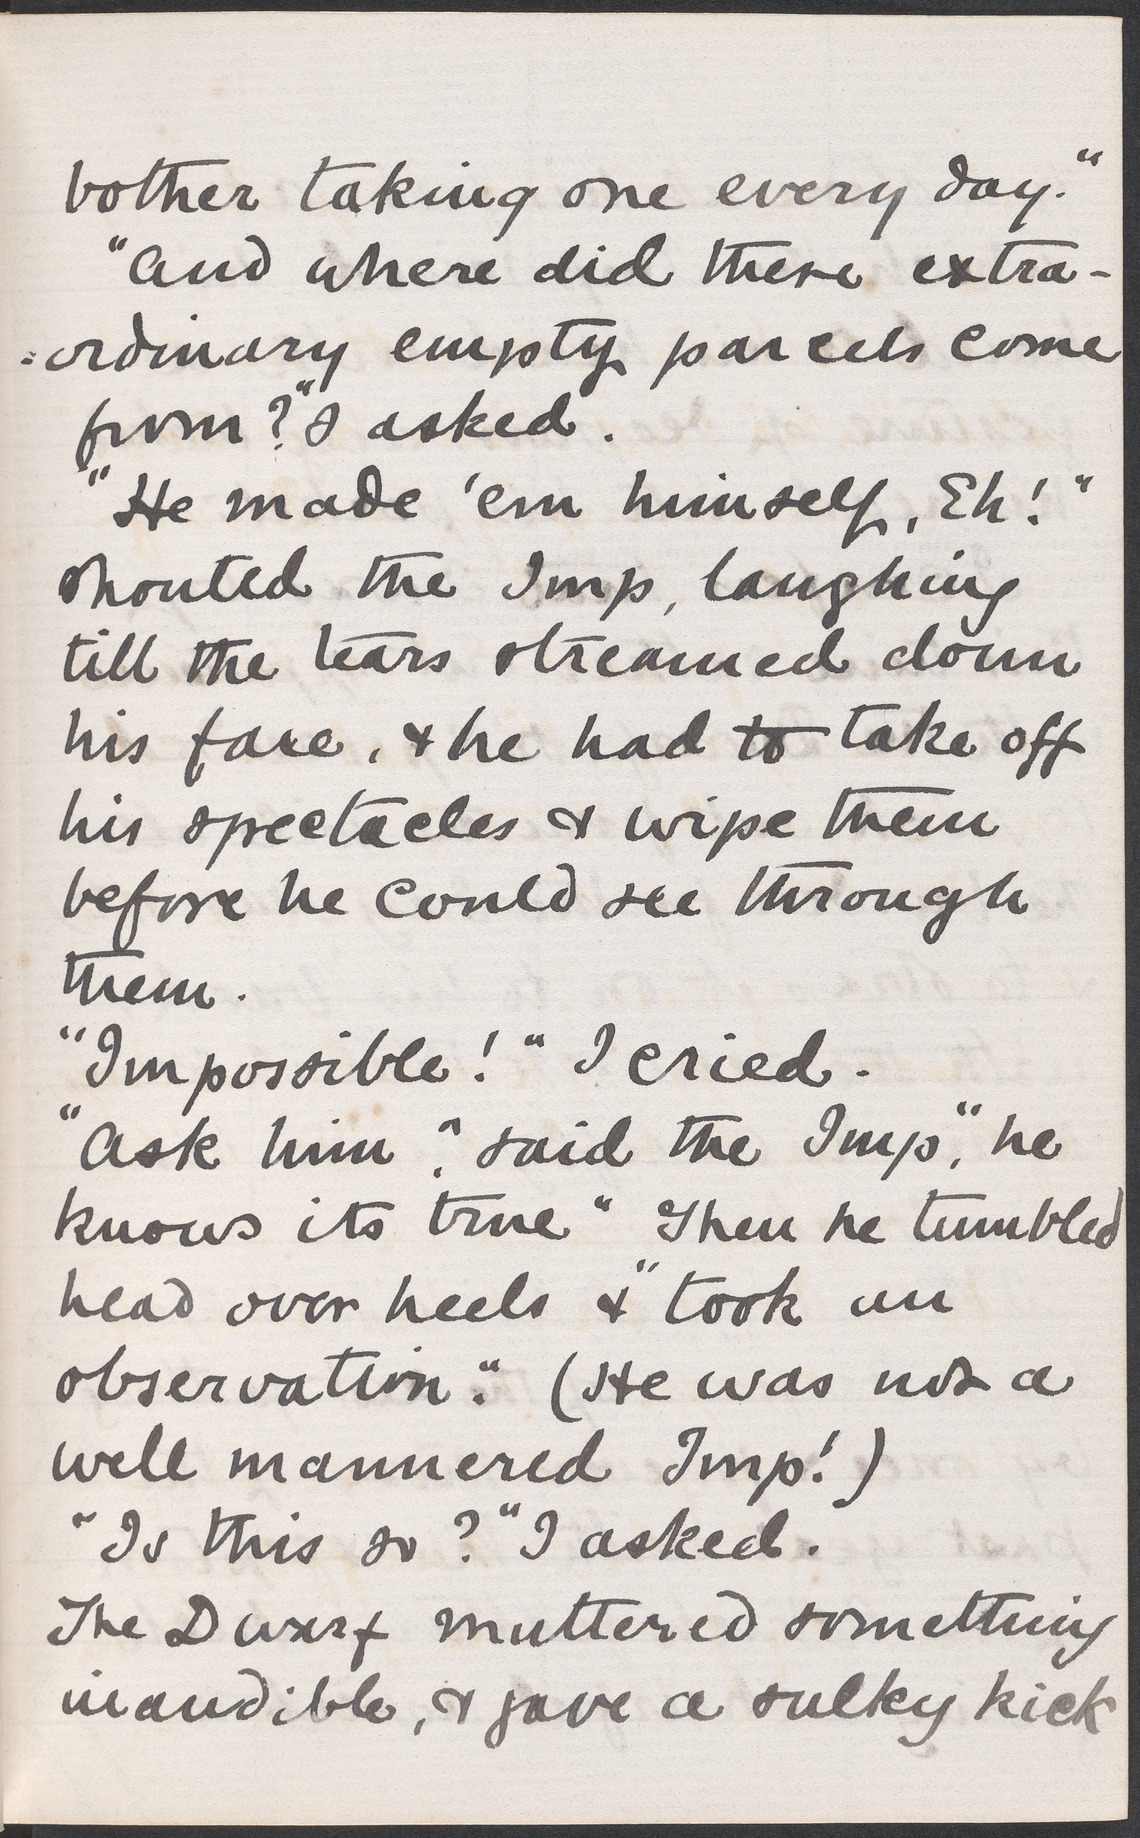 bother taking one every day."
"And where did these extra-
-ordinary empty parcels come
from?" I asked.
"He made 'em himself, Eh!"
shouted the Imp, laughing
till the tears streamed down
his face, & he had to take off
his spectacles & wipe them
before he could see through
them.
"Impossible!" I cried.
"Ask him," said the Imp, "he
knows its true" Then he tumbled
head over heels & "took an
observation." (He was not a
well mannered Imp!)
"Is this so?" I asked.
The Dwarf muttered something
inaudible, & gave a sulky kick